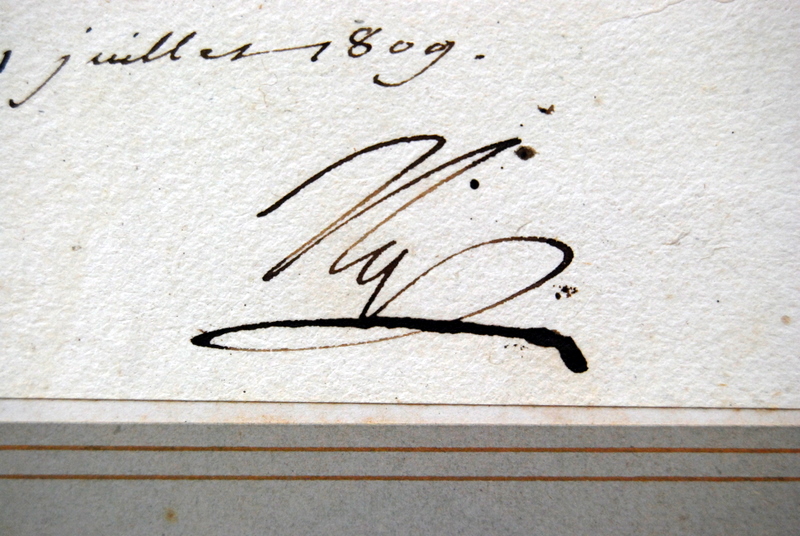 juillet 1809.
Np